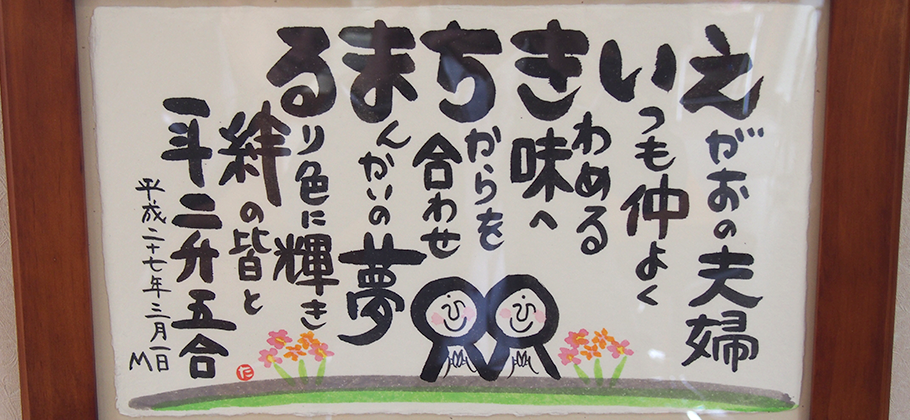 えがおの夫婦
いつも仲よく
きわめる
味へ
ちからを
合わせ
まんかいの
夢
るり色に輝き
絆の皆と
一斗二升五合
平成二十七年三月一日
M
に